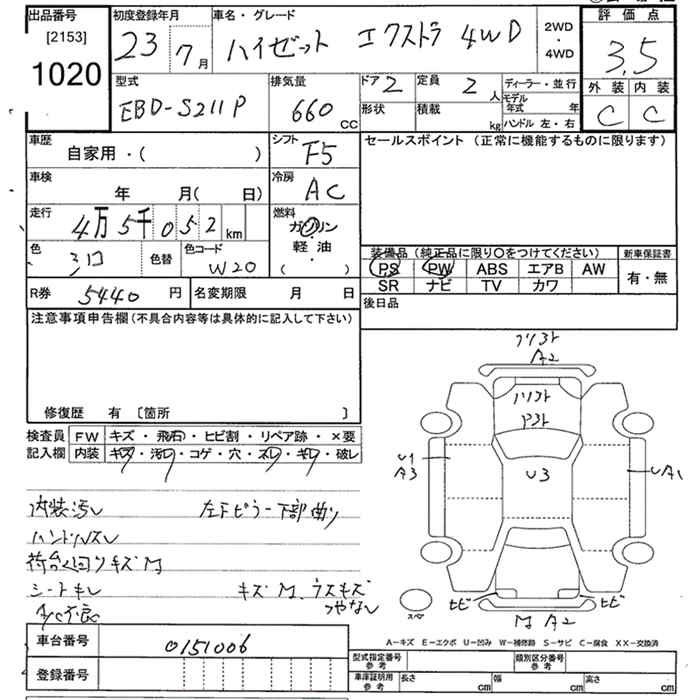 出品番号 初度登録年月 車名・グレード 評価点
[2153] 23年 7月 ハイゼット エクストラ 4WD 2WD・4WD 3.5
1020
型式 排気量 ドア 2 定員 2人 ディーラー・並行 外装 内装
EBD-S211P 660cc 形状 積載 kg モデル年式 年 C C
ハンドル 左・右
車歴 シフト セールスポイント (正常に機能するものに限ります)
自家用・( ) F5
車検 冷房
年 月( 日) AC
走行 燃料
4万5千052km ガソリン
軽油
・
( )
色 色替 色コード 装備品 (純正品に限り〇をつけてください) 新車保証書
シロ W20 PS PW ABS エアB AW 有・無
SR ナビ TV カワ
R券 5440円 名変期限 月 日 後日品
注意事項申告欄(不具合内容等は具体的に記入して下さい)
修復歴 有 [箇所 ]
検査員 FW キズ・飛石・ヒビ割・リペア跡・×要
記入欄 内装 キズ・汚レ・コゲ・穴・スレ・キレ・破レ
A2
U1
A3
U3
UA1
内装汚レ 左下ピラー下部曲り
ハンドルスレ
荷台回りキズM
シートキレ キズM、ウスキズ
A/C不良
ヒビ ヒビ
スペア
M A2
車台番号 0151006
A-キズ E-エクボ U-凹み W-補修跡 S-サビ C-腐食 XX-交換済
登録番号
型式指定番号 参考 類別区分番号 参考
車庫証明用 参考 長さ cm 幅 cm 高さ cm